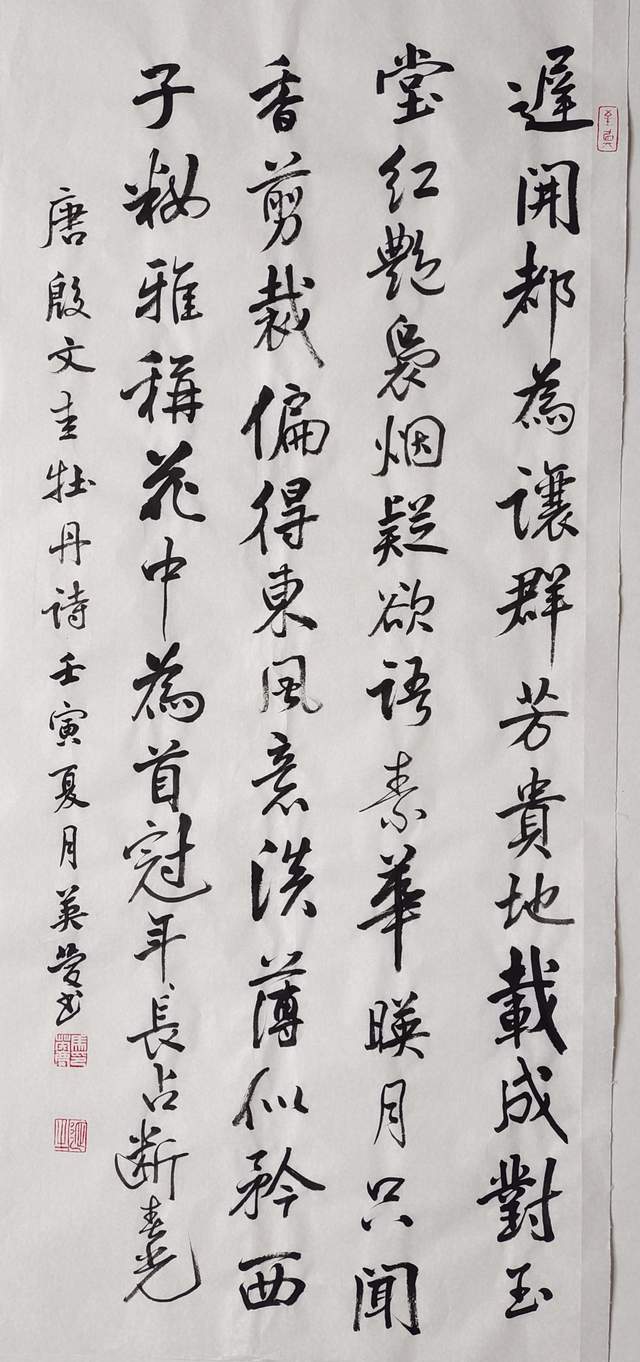 遲開都為讓群芳貴地載成對玉
堂紅艷裊烟疑欲語素華映月只聞
香剪裁偏得東風意淡薄似矜西
子妝雅稱花中為首冠年長占斷春光
唐殷文圭牡丹詩壬寅夏月英瑩书